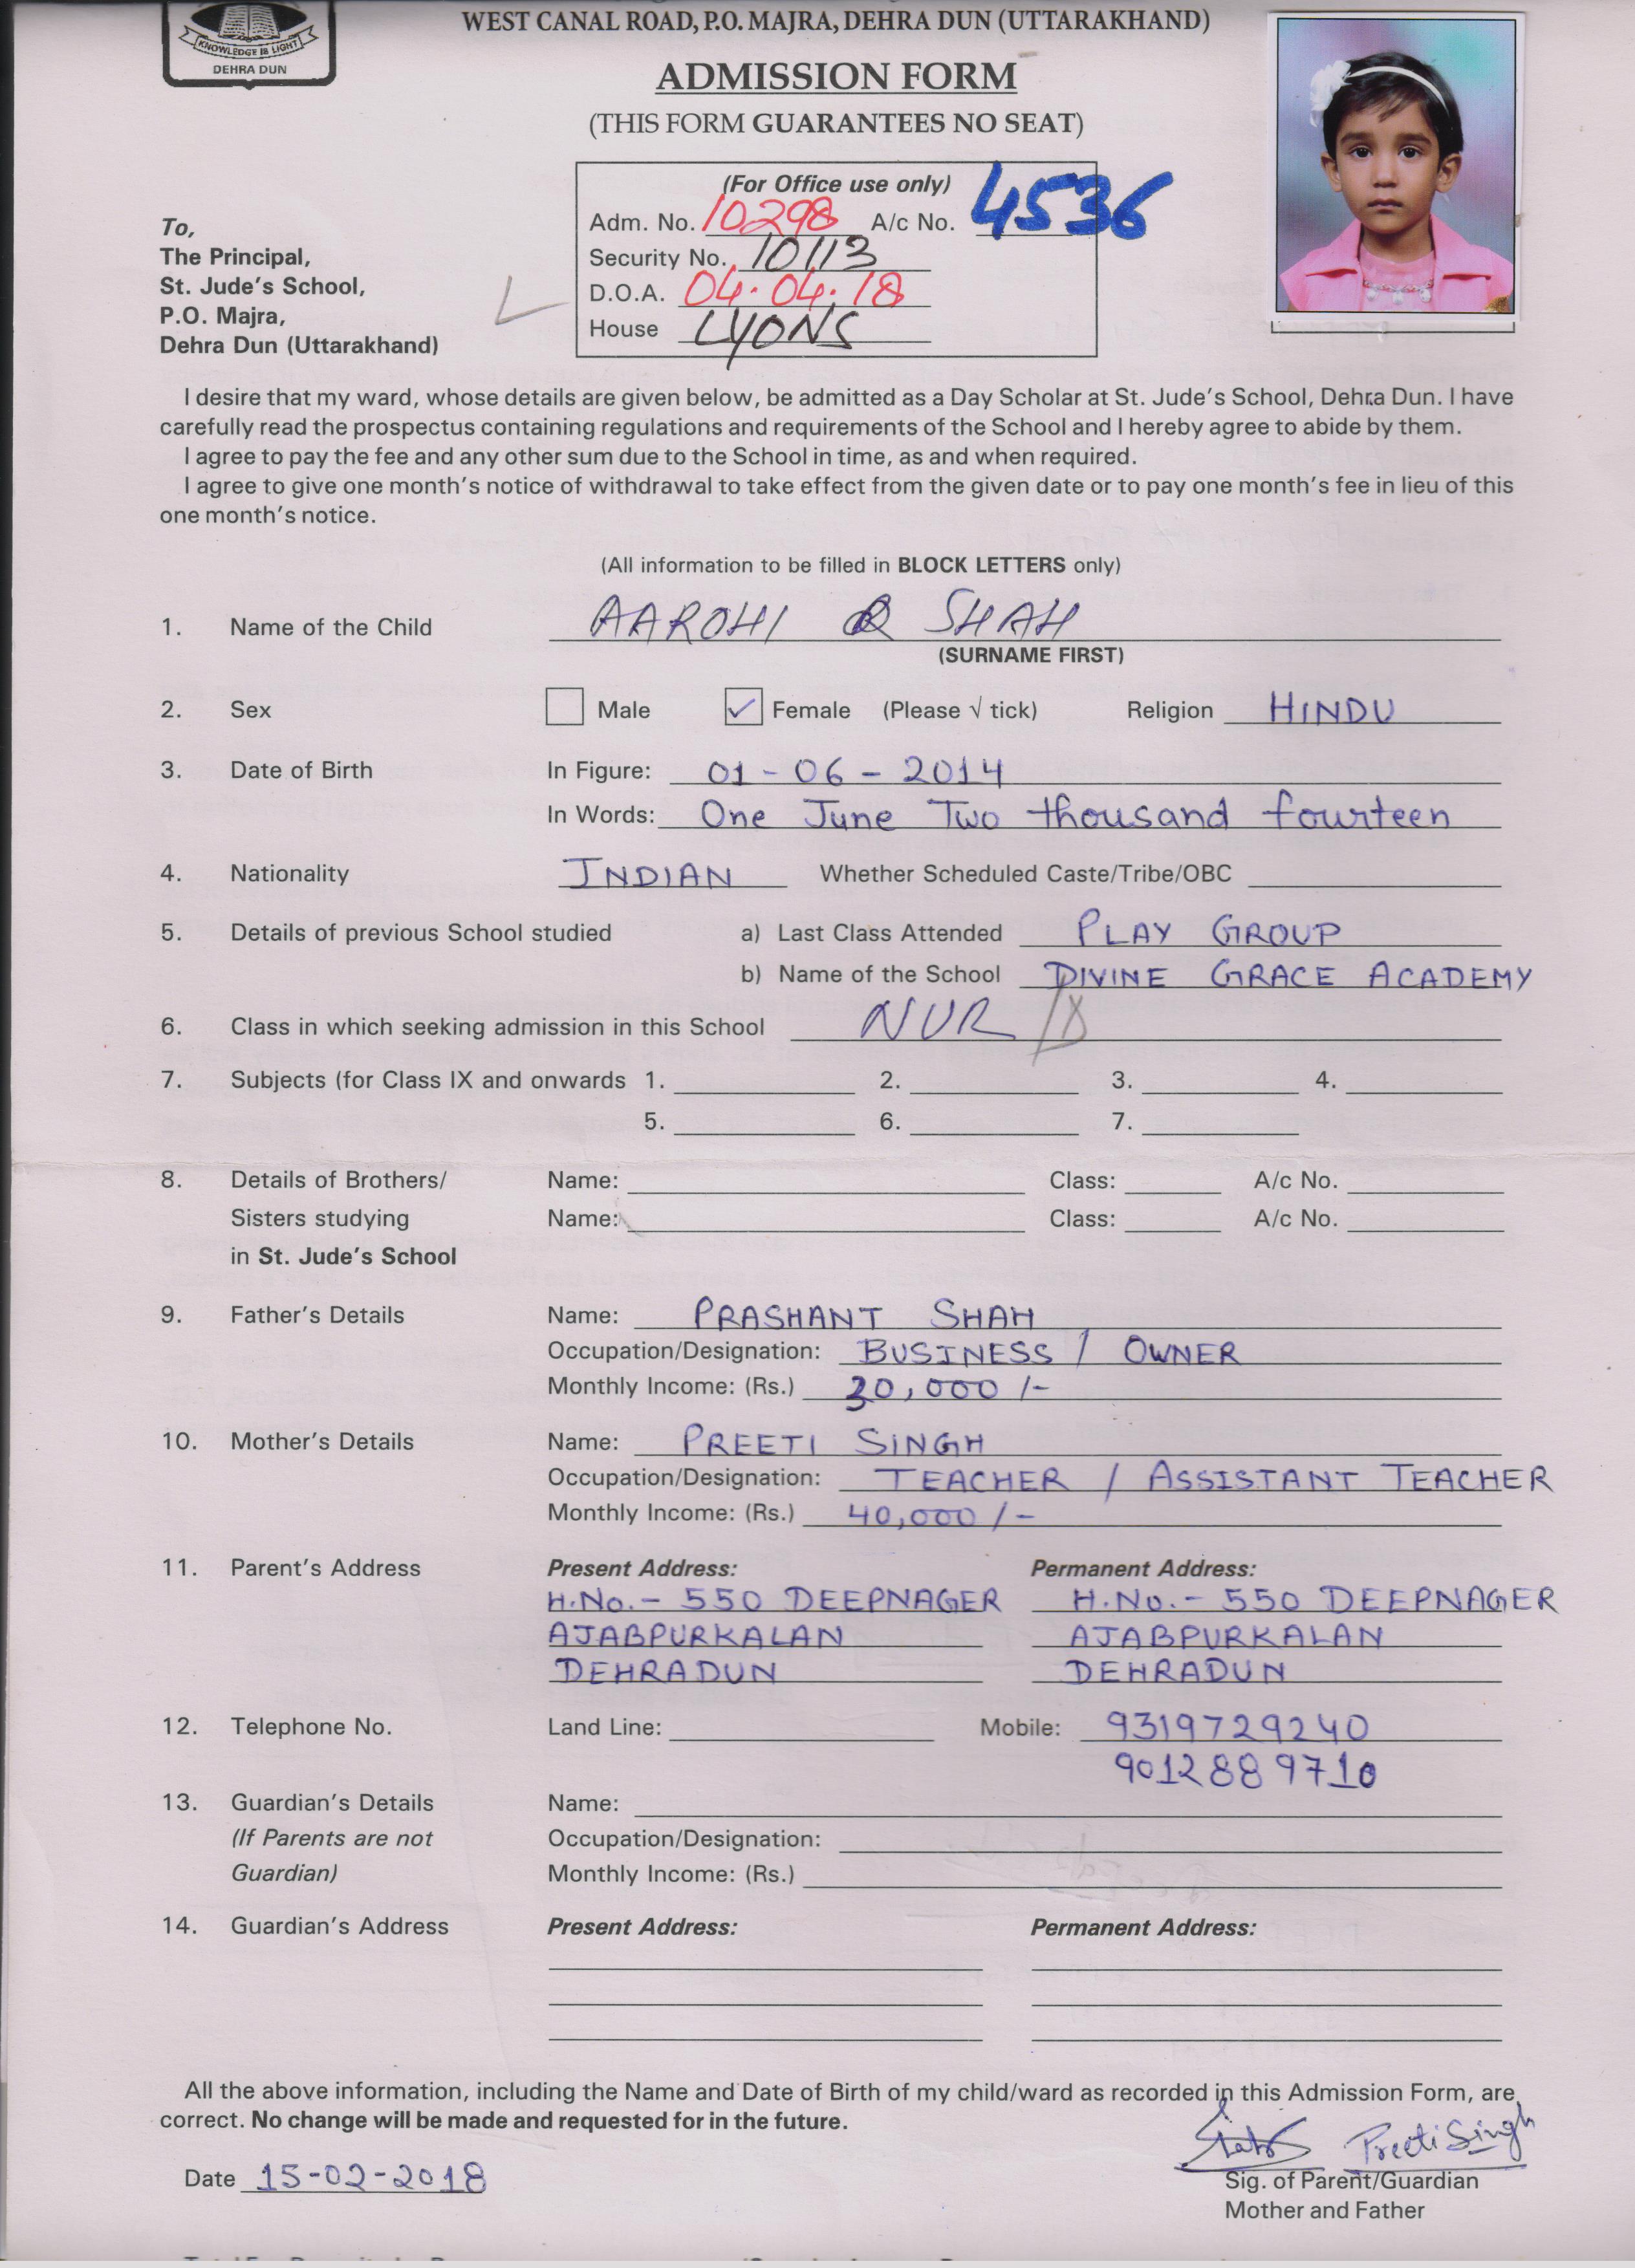 KNOWLEDGE IS LIGHT
DEHRA DUN
WEST CANAL ROAD, P.O. MAJRA, DEHRA DUN (UTTARAKHAND)
ADMISSION FORM
(THIS FORM GUARANTEES NO SEAT)
(For Office use only)
Adm. No. 10298 A/c No. 4536
Security No. 10113
D.O.A. 04.04.18
House LYONS
To,
The Principal,
St. Jude's School,
P.O. Majra,
Dehra Dun (Uttarakhand)
I desire that my ward, whose details are given below, be admitted as a Day Scholar at St. Jude's School, Dehra Dun. I have
carefully read the prospectus containing regulations and requirements of the School and I hereby agree to abide by them.
I agree to pay the fee and any other sum due to the School in time, as and when required.
I agree to give one month's notice of withdrawal to take effect from the given date or to pay one month's fee in lieu of this
one month's notice.
(All information to be filled in BLOCK LETTERS only)
1. Name of the Child AAROHI SHAH
(SURNAME FIRST)
2. Sex Male ✓ Female (Please √ tick) Religion HINDU
3. Date of Birth In Figure: 01-06-2014
In Words: One June Two thousand fourteen
4. Nationality INDIAN Whether Scheduled Caste/Tribe/OBC
5. Details of previous School studied a) Last Class Attended PLAY GROUP
b) Name of the School DIVINE GRACE ACADEMY
6. Class in which seeking admission in this School NUR
7. Subjects (for Class IX and onwards 1. 2. 3. 4.
5. 6. 7.
8. Details of Brothers/ Name: Class: A/c No.
Sisters studying Name: Class: A/c No.
in St. Jude's School
9. Father's Details Name: PRASHANT SHAH
Occupation/Designation: BUSINESS / OWNER
Monthly Income: (Rs.) 30,000/-
10. Mother's Details Name: PREETI SINGH
Occupation/Designation: TEACHER / ASSISTANT TEACHER
Monthly Income: (Rs.) 40,000/-
11. Parent's Address Present Address: Permanent Address:
H.No.- 550 DEEPNAGER H.No.- 550 DEEPNAGER
AJABPURKALAN AJABPURKALAN
DEHRADUN DEHRADUN
12. Telephone No. Land Line: Mobile: 9319729240
9012889710
13. Guardian's Details Name:
(If Parents are not Occupation/Designation:
Guardian) Monthly Income: (Rs.)
14. Guardian's Address Present Address: Permanent Address:
All the above information, including the Name and Date of Birth of my child/ward as recorded in this Admission Form, are
correct. No change will be made and requested for in the future.
Preeti Singh
Date 15-02-2018
Sig. of Parent/Guardian
Mother and Father